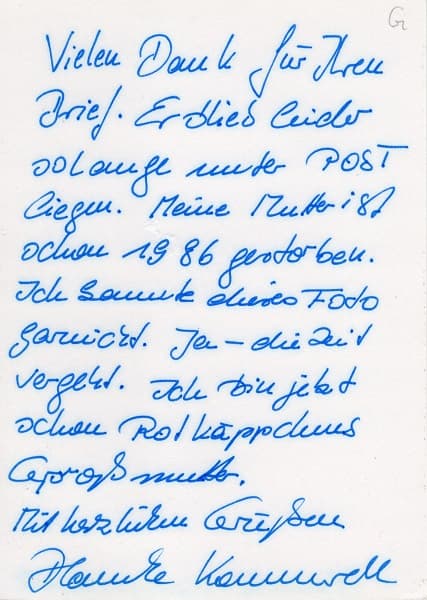 G
Vielen Dank für Ihren
Brief. Er blieb leider
solange unter POST
liegen. Meine Mutter ist
schon 1986 gestorben.
Ich kannte dieses Foto
garnicht. Ja – die Zeit
vergeht. Ich bin jetzt
schon Rotkäppchens
Großmutter.
Mit herzlichen Grüßen